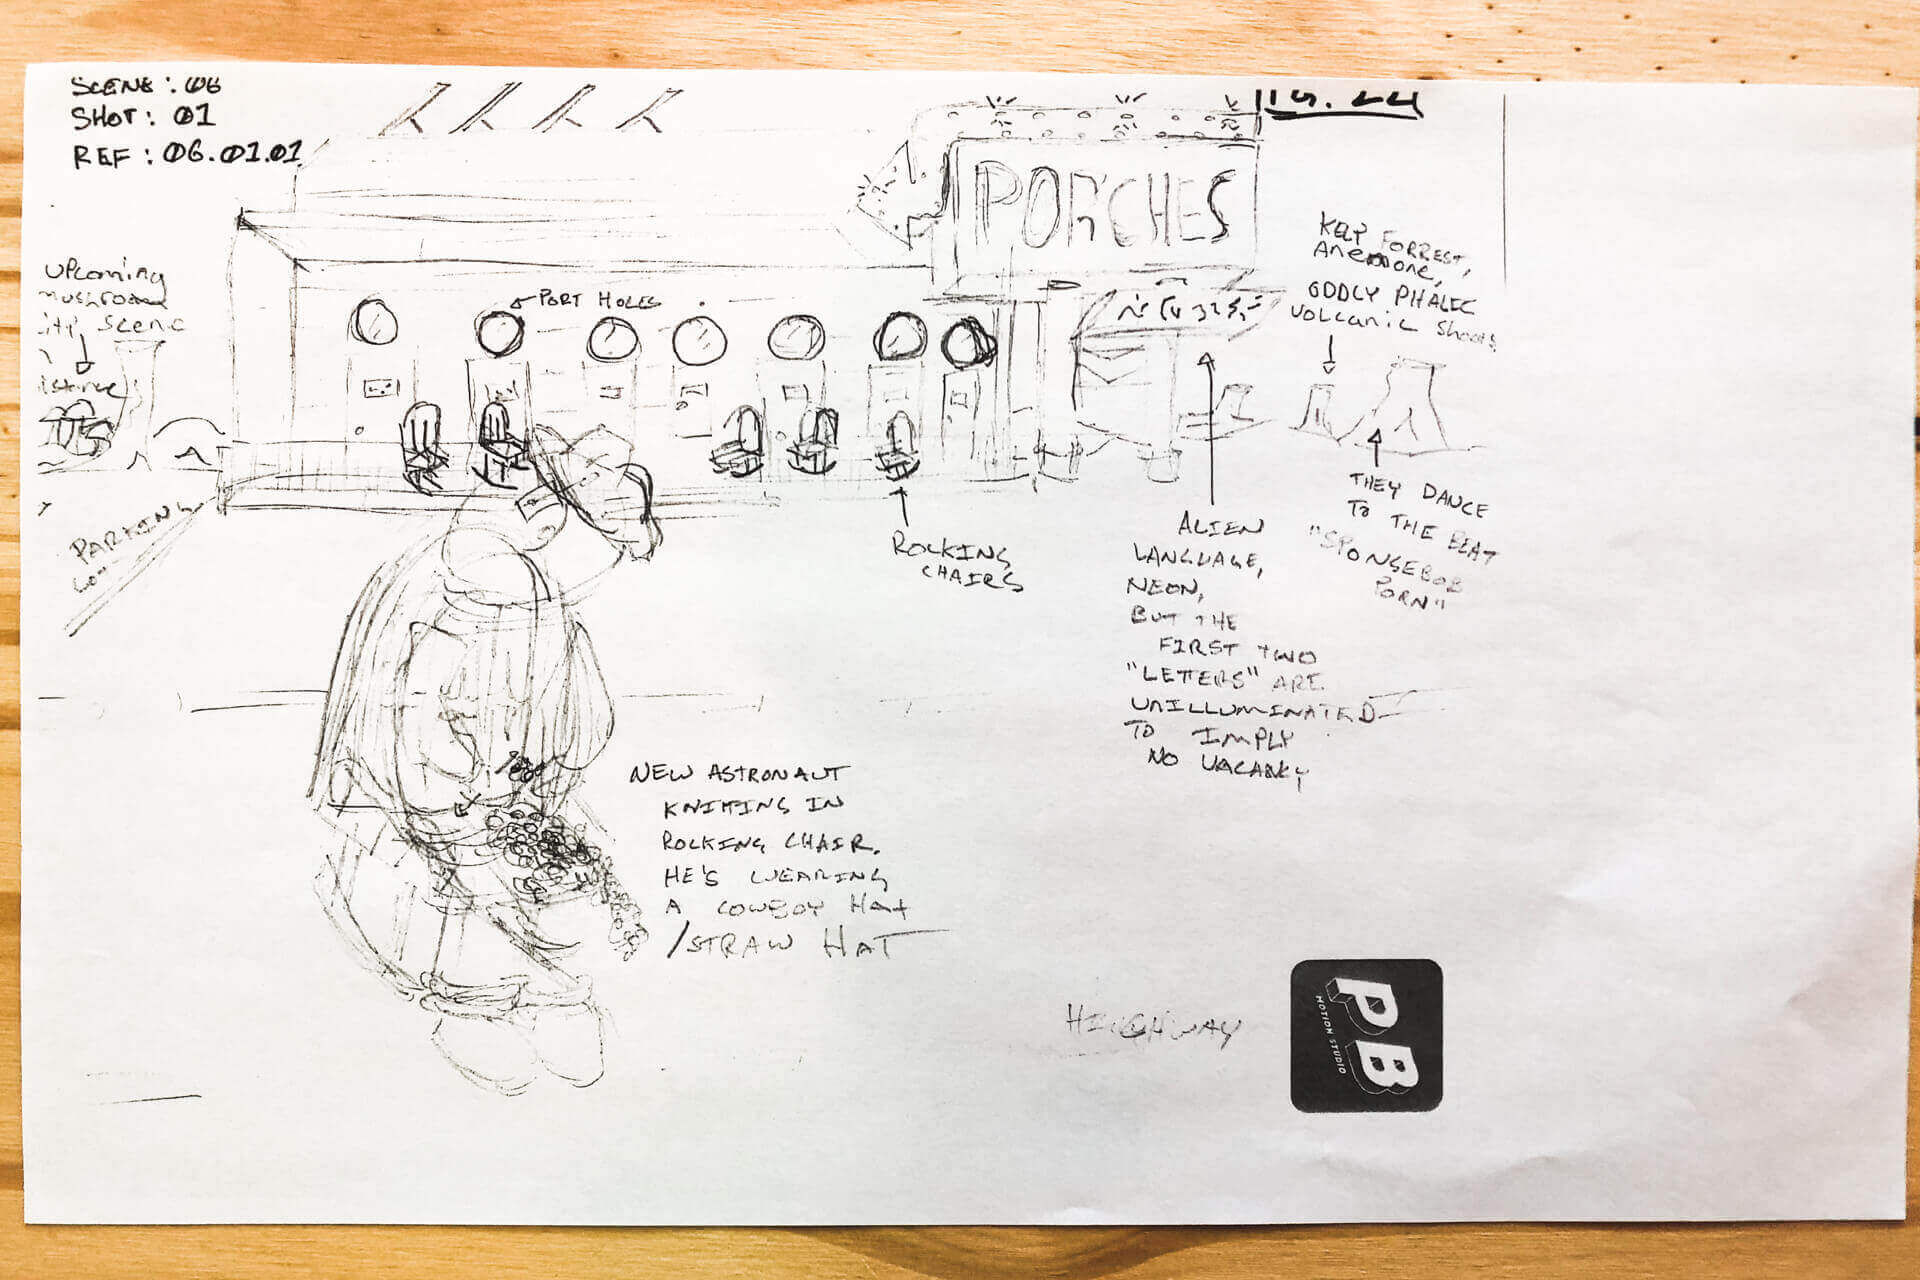 SCENE: 06
SHOT: 01
REF: 06.01.01
PORCHES
UPCOMING
MUSHROOM
CITY SCENE
PORT HOLES
KELP FORREST,
ANEMONE,
ODDLY PHALIC
VOLCANIC Shoots
PARKING
LOT
ROCKING
CHAIRS
ALIEN
LANGUAGE,
NEON,
BUT THE
FIRST TWO
"LETTERS" ARE
UNILLUMINATED
TO IMPLY
NO VACANCY
THEY DANCE
TO THE BEAT
"SPONGEBOB
PORN"
NEW ASTRONAUT
KNITTING IN
ROCKING CHAIR.
HE'S WEARING
A COWBOY HAT
/STRAW HAT
HIGHWAY
PB
MOTION STUDIO